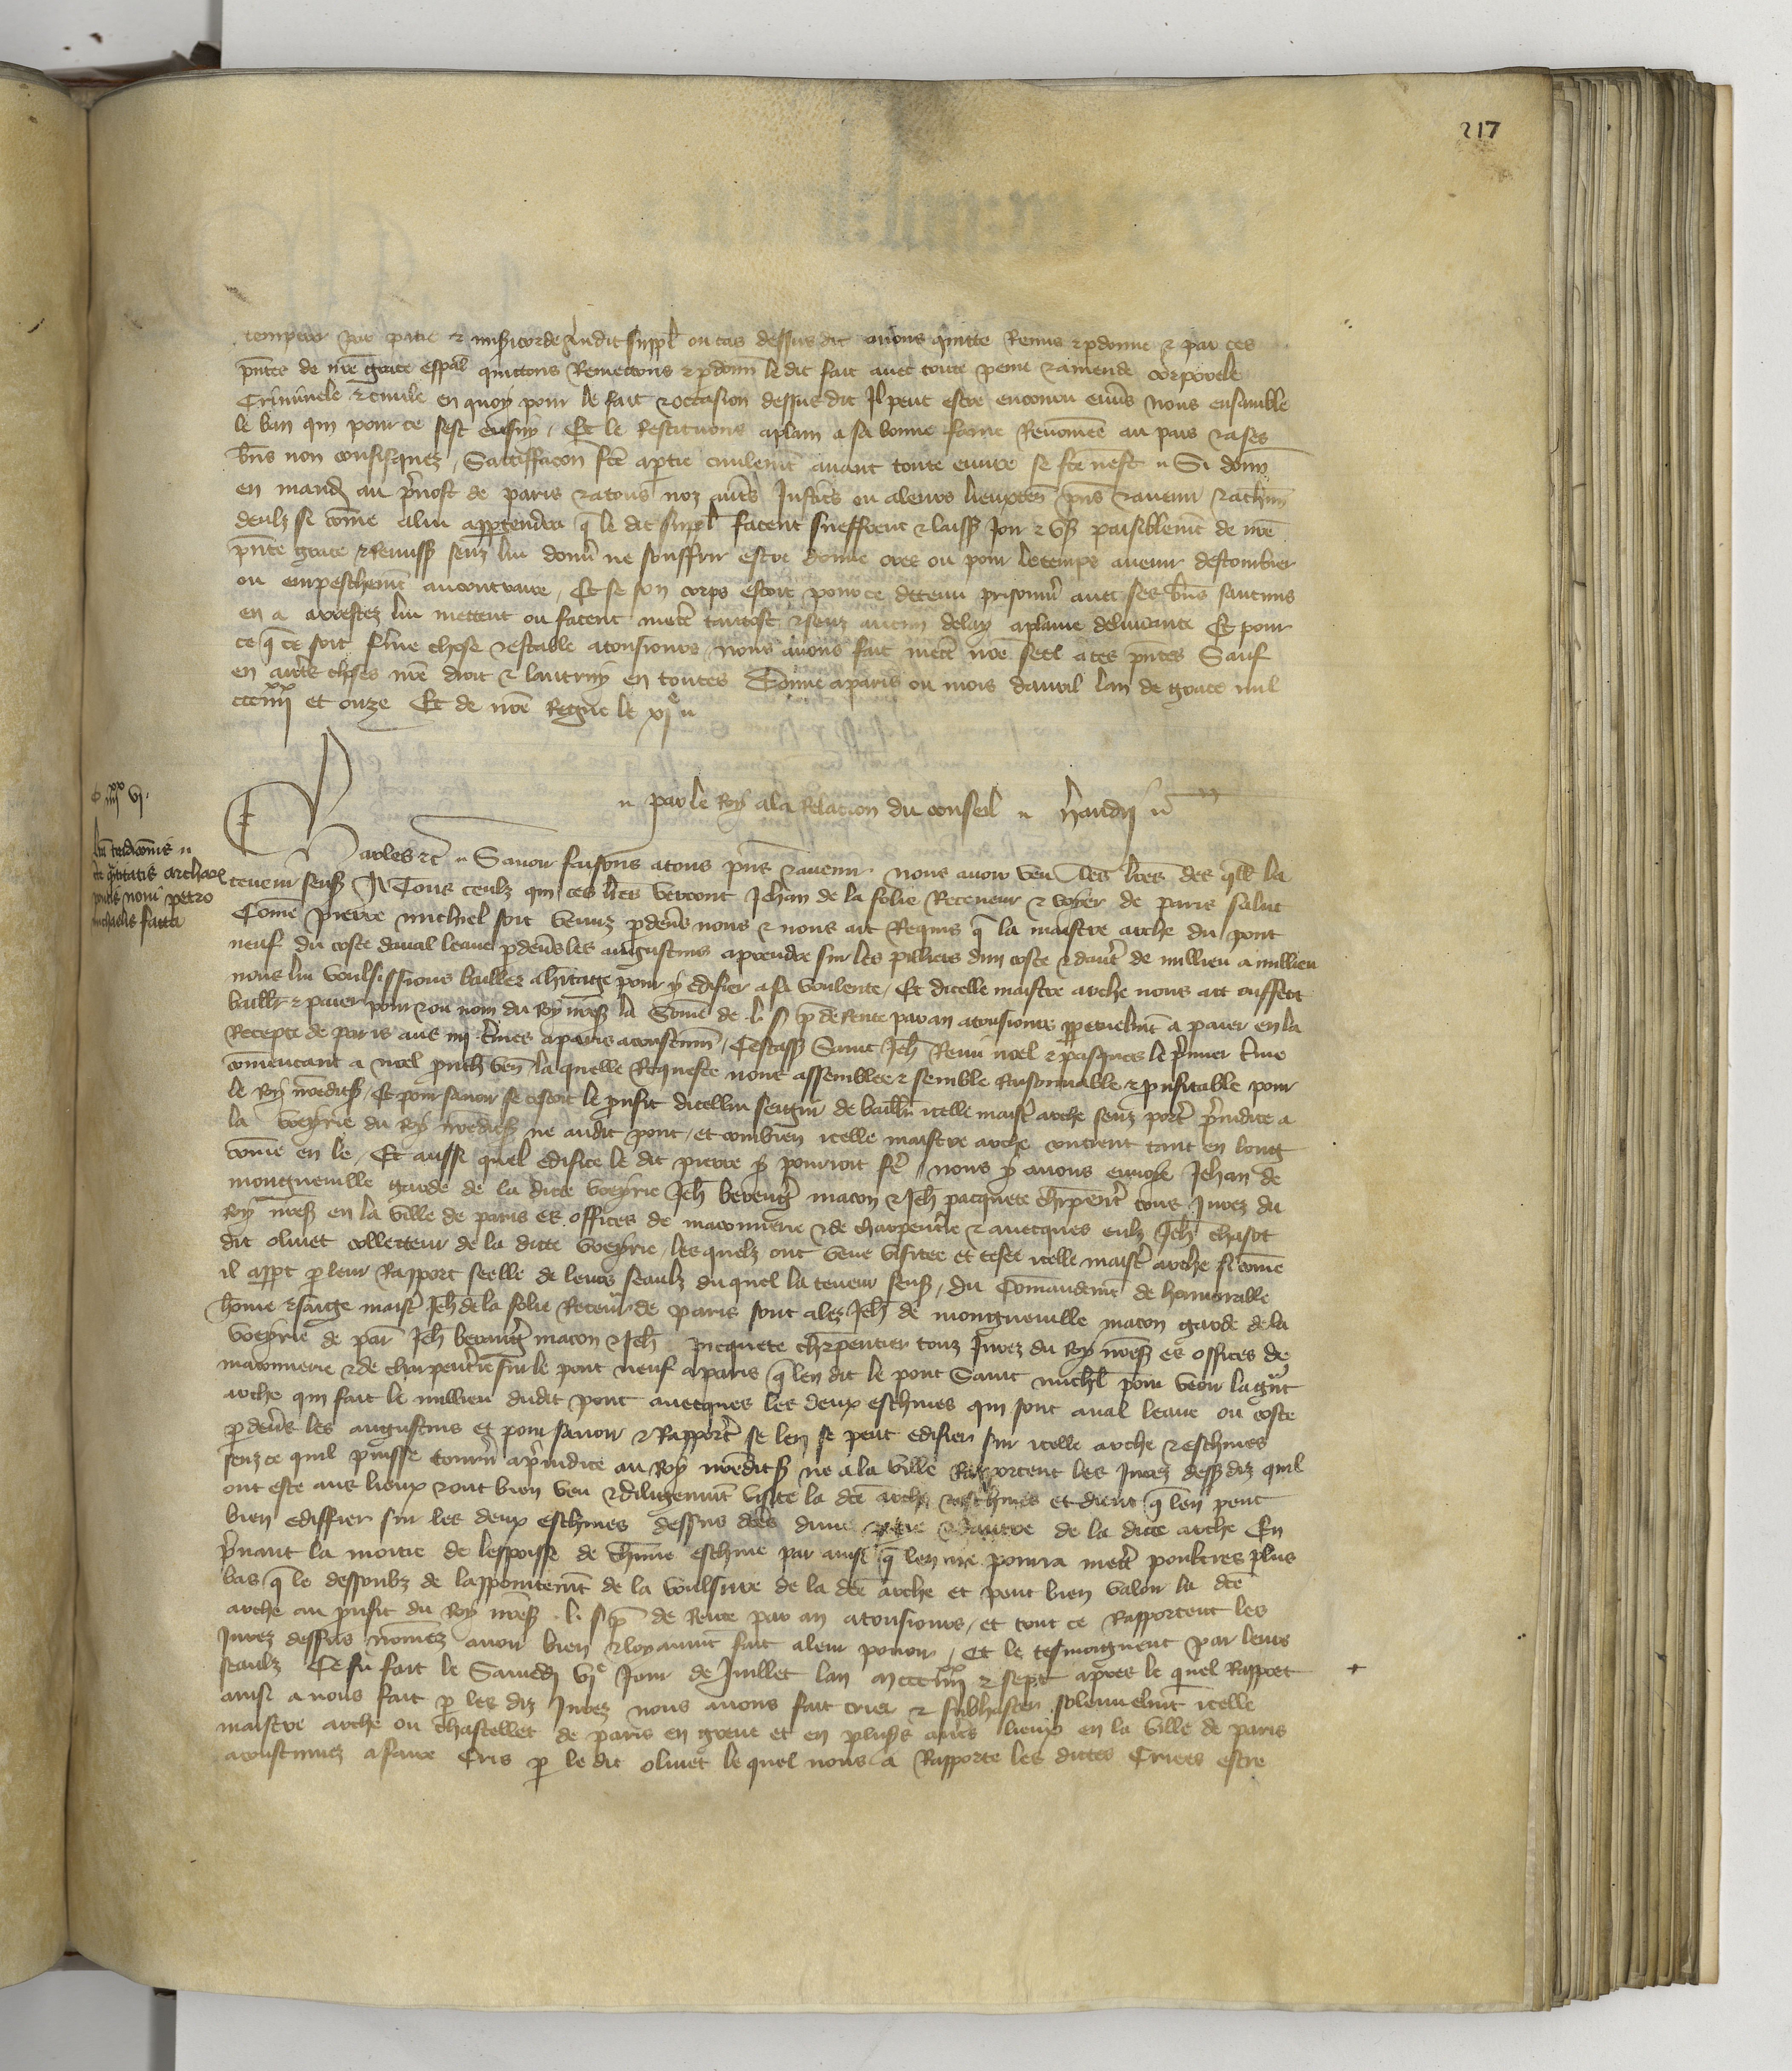 217
pitie & misericorde audit suppl ou cas dessus dit avons quitte Remis & pdonne & par ces
pntes de nre grace espal quittons Remettons & pdonn le dit fait avec toute peine & amende corporele
Criminele & civile en quoy pour le fait & occasion dessus dit Il peut estre encouru envs nous ensamble
le ban qui pour ce sest ensuy / Et le Restituons a plain a sa bonne fame Renomee au pais & a ses
bns non confisquez / Sattiffacon fce a ptie civilemt avant toute euvre se fce nest Si donn
en mand au pvost de paris & a tous noz aues Justics ou a leurs lieuxten pns & avenir & a chun
deulz si come a lui apptendra q le dit suppl facent sueffrent & laiss Joir & us paisiblemt de nre
pnte grace & Remiss senz lui donner ne souffrir estre donne ores ou pour le temps avenir destourbier
ou empeschemt au contraire / Et se son corps estoit pour ce detenu prisonnr avec ses bns saucuns
en a arrestez lui mettent ou facent mettre tantost & senz aucun delay a plaine delivrance Et pour
ce q ce soit ferme chose & estable a tousiours / nous avons fait mettre nre seel a ces pntes Sauf
en autres choses nre droit & lautruy en toutes Donne a paris ou mois davril lan de grace mil
ccc iiii xx et onze Et de nre Regne le xi e
par le Roy a la Relacion du conseil
c iiii xx vi .
Charles &c Savoir faisons a tous pns & avenir nous avoir veu les lres des qlles la
teneur sensuit A Tous ceulz qui ces lres verront Jehan de la folie Receveur & voyer de paris salut
pontis novi petro
michaelis facta
Come pierre michiel soit venuz pdevs nous & nous ait Requis q la maistre arche du pont
neuf du coste daval leaue pdevs les augustins a prendre sur les pilliers dun coste & dautre de millieu a millieu
nous lui voulsissions bailler a heritage pour y edifier a sa voulente / Et dicelle maistre arche nous ait offert
baillr & paier pour & ou nom du Roy nres la Some de l s p de Rente par an a tousiours ppetuelmt a paier en la
Recepte de paris aus iiii tmes a paris acoustum / Cestass Saint Jeh Remi noel & pasques le pmier tme
comencant a noel prch ven la quelle Requeste nous a semblee & semble Raisonnable & proufitable pour
le Roy nredits / Et pour savoir se cestoit le proufit dicellui seigneur de bailler icelle maistre arche senz porter prejudice a
la voeyrie du Roy nredits ne audit pont / et combien icelle maistre arche contient tant en long
come en le / Et aussi quel edifice le dit pierre y pourroit fere / nous y avons envoye Jehan de
monguenville garde de la dicte voeyrie Jeh berengr macon & Jeh pacquete chrpenter tous Jurez du
Roy nres en la ville de paris es offices de maconnerie & de charpenterie & avecques eulz Jeh chasot
dit olivet collecteur de la dicte voeyrie / les quelz ont veue visitee et tesee icelle maistre arche si come
il appt p leur Rapport seelle de leurs seaulz du quel la teneur sens / du Comandemt de honnorable
home & saige maistre Jeh de la folie Receveur de paris sont alez Jeh de monguenville macon garde de la
voeyrie de par Jeh beraugr macon & Jeh picquete chrpentier touz Jurez du Roy nres es offices de
maconnerie & de charpenterie sur le pont neuf a paris q len dit le pont Saint michl pour veoir la grant
arche qui fait le millieu dudit pont avecques les deux eschines qui sont aval leaue ou coste
pdevs les augustins et pour savoir & Rapporter se len se peut edifier sur icelle arche & eschines
senz ce quil puisse tournr a prejudice au Roy nredits ne a la ville Rapportent les Jurez dess diz quil
ont este aus lieux & ont bien veu & diligemmt visite la dce arche & eschines et dient q len peut
bien ediffier sur les deux eschines dessus dtes dune & dautre de la dicte arche En
prenant la moitie de lespoisse de chune eschine par ainsi q len ne pourra mettre poultres plus
bas q le dessoubz de lappointemt de la voulsure de la dce arche et peut bien valoir la dce
arche au proufit du Roy nres l s p de Rente par an a tousiours / et tout ce Rapportent les
Jurez dessus nomez avoir bien & loyaumt fait a leur povoir / Et le tesmoignent par leurs
seaulz Ce fu fait le Samedi vi e Jour de Juillet lan m ccc iiii xx & sept apres le quel Rapport +
ainsi a nous fait p les diz Jurez nous avons fait crier & subhaster solennelmt icelle
maistre arche ou chastellet de paris en greve et en plusrs autres lieux en la ville de paris
acoustumez a faire Cris p le dit olivet le quel nous a Rapporte les dictes Criees estre